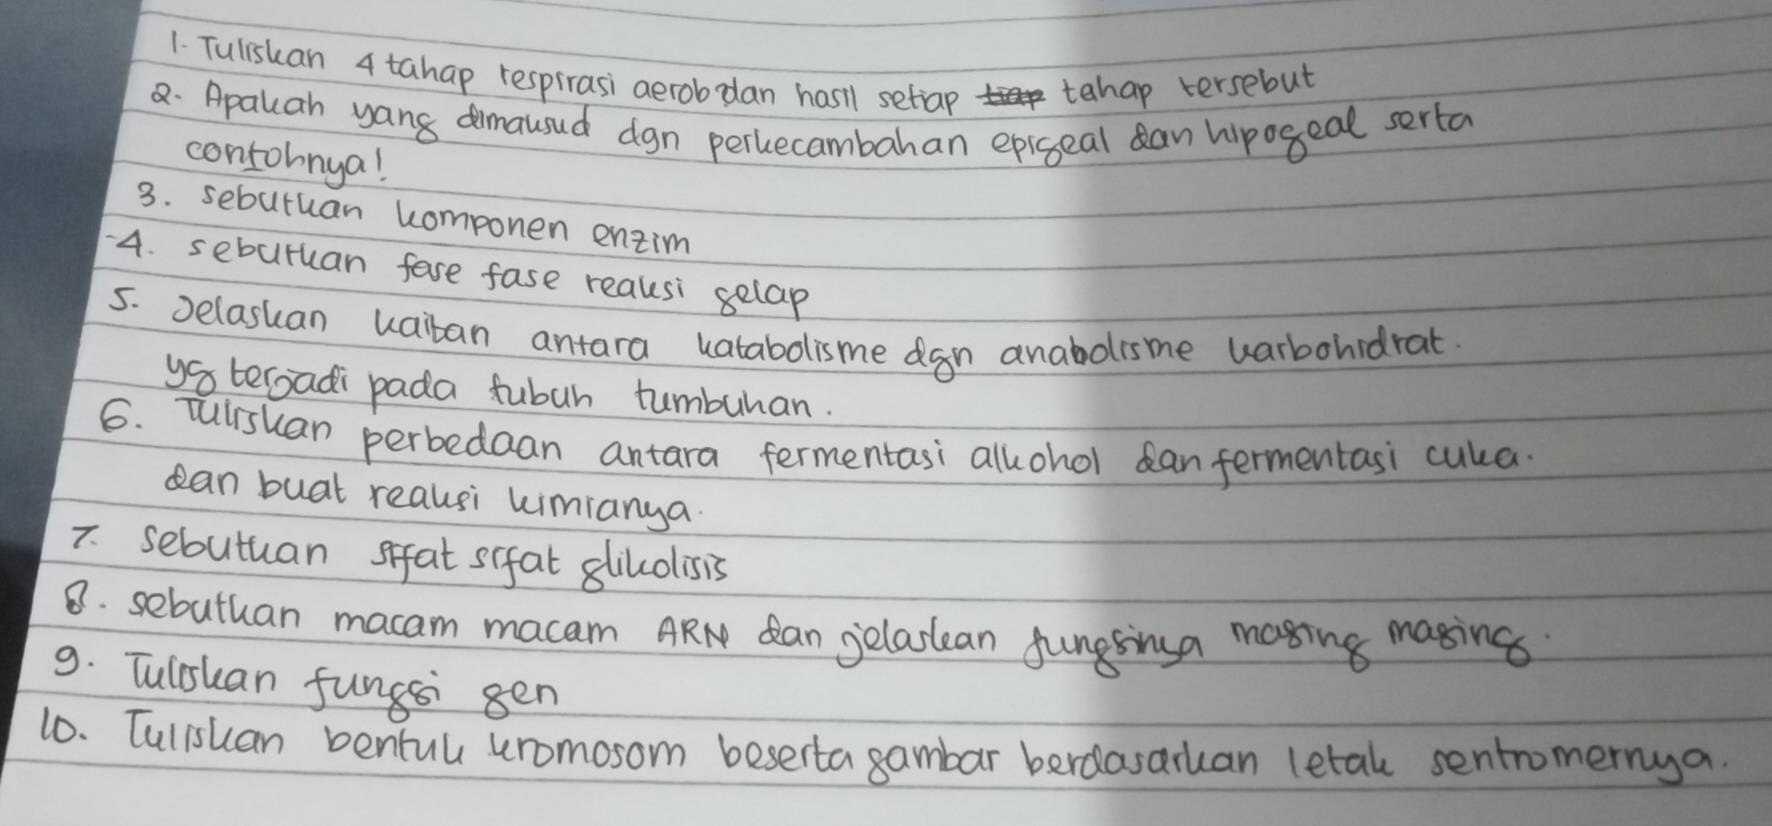 1. Tuliskan 4 tahap respirasi aerob dan hasil setiap tiap tahap tersebut
2. Apakah yang dimaksud dgn perkecambahan epigeal dan hipogeal serta
contohnya!
3. sebutkan komponen enzim
4. sebutkan fase fase reaksi gelap
5. Jelaskan kaitan antara katabolisme dgn anabolisme karbohidrat.
yg terjadi pada tubuh tumbuhan.
6. Tuliskan perbedaan antara fermentasi alkohol dan fermentasi cuka.
dan buat reaksi kimianya.
7. sebutkan sifat sifat glikolisis
8. sebutkan macam macam ARN dan jelaskan fungsinya masing masing.
9. Tuliskan fungsi gen
10. Tuliskan bentuk kromosom beserta gambar berdasarkan letak sentromernya.